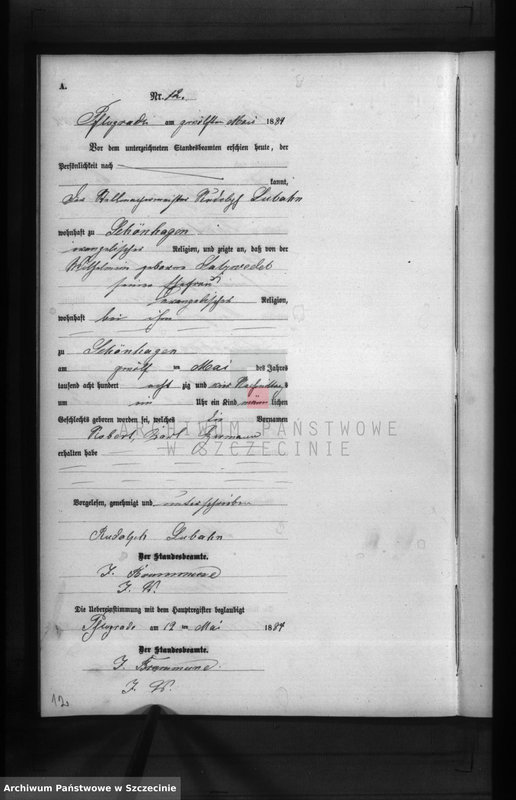 A.
Nr. 12.
Pflugrade am zwölften Mai 1884
Vor dem unterzeichneten Standesbeamten erschien heute, der
Persönlichkeit nach
kannt,
der Rudolph Lubahn
wohnhaft zu Schönhagen
evangelischer Religion, und zeigte an, daß von der
geborne
seiner Ehefrau
evangelischer Religion,
wohnhaft bei ihm
zu Schönhagen
am zwölf ten Mai des Jahres
tausend acht hundert acht zig und vier Nachmittags
um ein Uhr ein Kind männ lichen
Geschlechts geboren worden sei, welches die Vornamen
Robert Karl Hermann
erhalten habe
Vorgelesen, genehmigt und unterschrieben
Rudolph Lubahn
Der Standesbeamte.
J. V.
Die Uebereinstimmung mit dem Hauptregister beglaubigt
Pflugrade am 12 ten Mai 1884
Der Standesbeamte.
J. V.
12
ARCHIWUM PAŃSTWOWE
W SZCZECINIE
Archiwum Państwowe w Szczecinie